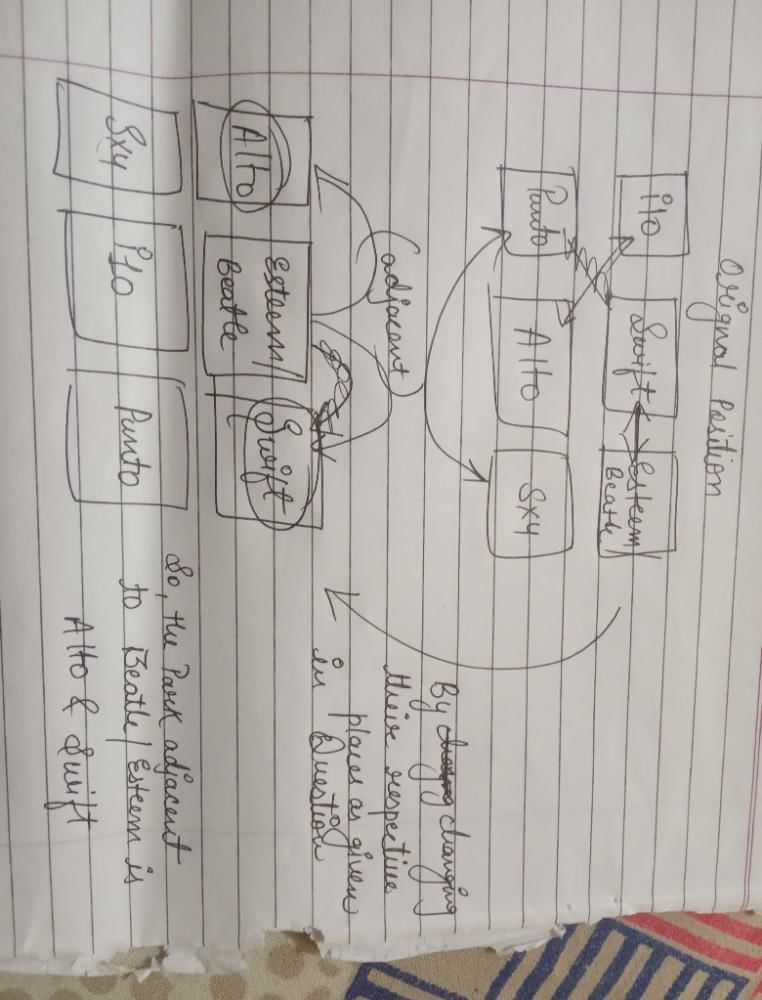 Orignal Position
i10 Swift Esteem/
Beatle
Punto Alto Sx4
adjacent
By changing
their respective
places as given
in Question
Alto Esteem/ Swift
Beatle
Sx4 i10 Punto
So, the Park adjacent
to Beatle/Esteem is
Alto & Swift